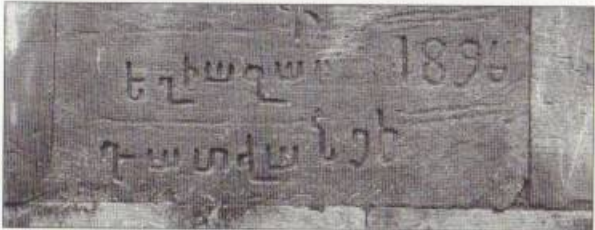 Եղիազար 1896
Դատվանցի